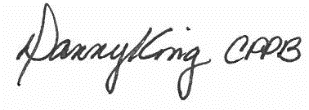 Danny King CPPB